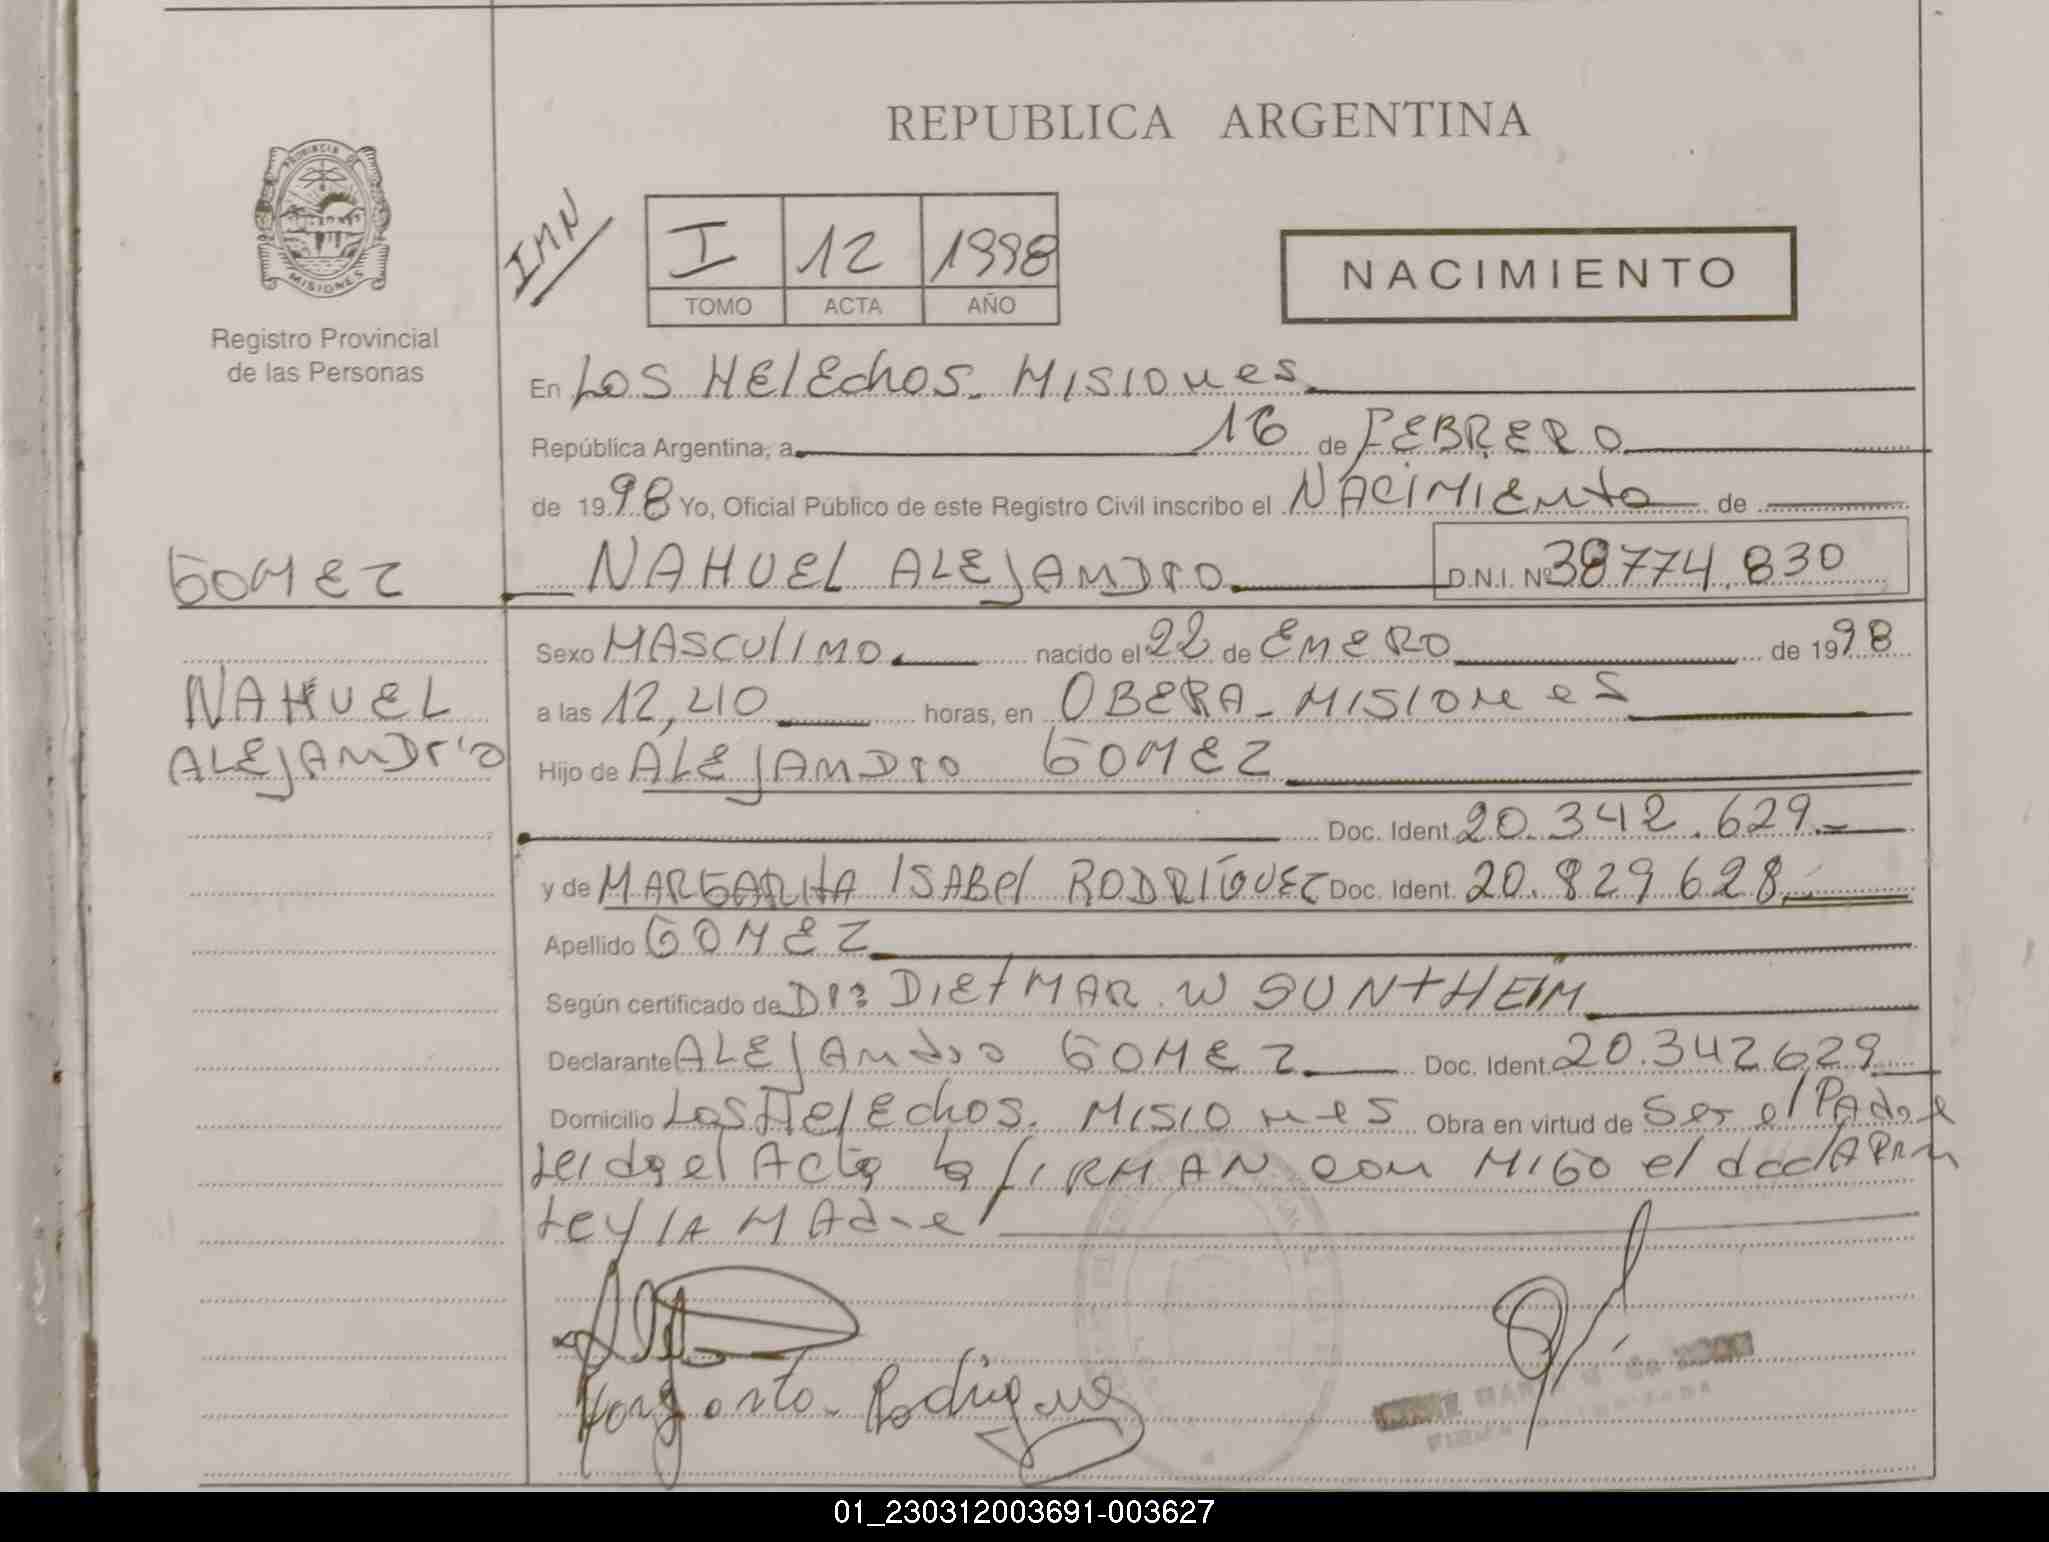 REPUBLICA ARGENTINA
PROVINCIA DE
MISIONES
Registro Provincial
de las Personas
IMN
I 12 1998
TOMO ACTA AÑO
NACIMIENTO
En Los HelEchos. Misiones
República Argentina, a 16 de FEBRERO
de 1998 Yo, Oficial Público de este Registro Civil inscribo el NACIMIEnto de
GOMEZ
NAHUEL ALEJANDRO D.N.I. Nº 38774.830
Sexo MASCULINO. nacido el 22 de ENERO de 1998
NAHUEL
ALEJANDRO
a las 12,40 horas, en OBERA - MISIONES
Hijo de ALEJANDRO GOMEZ
Doc. Ident. 20.342.629.-
y de MARGARITA ISABEl RODRIGUEZ Doc. Ident. 20.829628.-
Apellido GOMEZ
Según certificado de DIETMAR. W SUNTHEIM
Declarante ALEJAndro GOMEZ Doc. Ident. 20.342629
Domicilio Los HelEchos. Misiones Obra en virtud de Ser el PAdre
Leida el Acta la fIRMAN con MIGO el declARAn
te y lA MAdre
Rodrigue
01_230312003691-003627